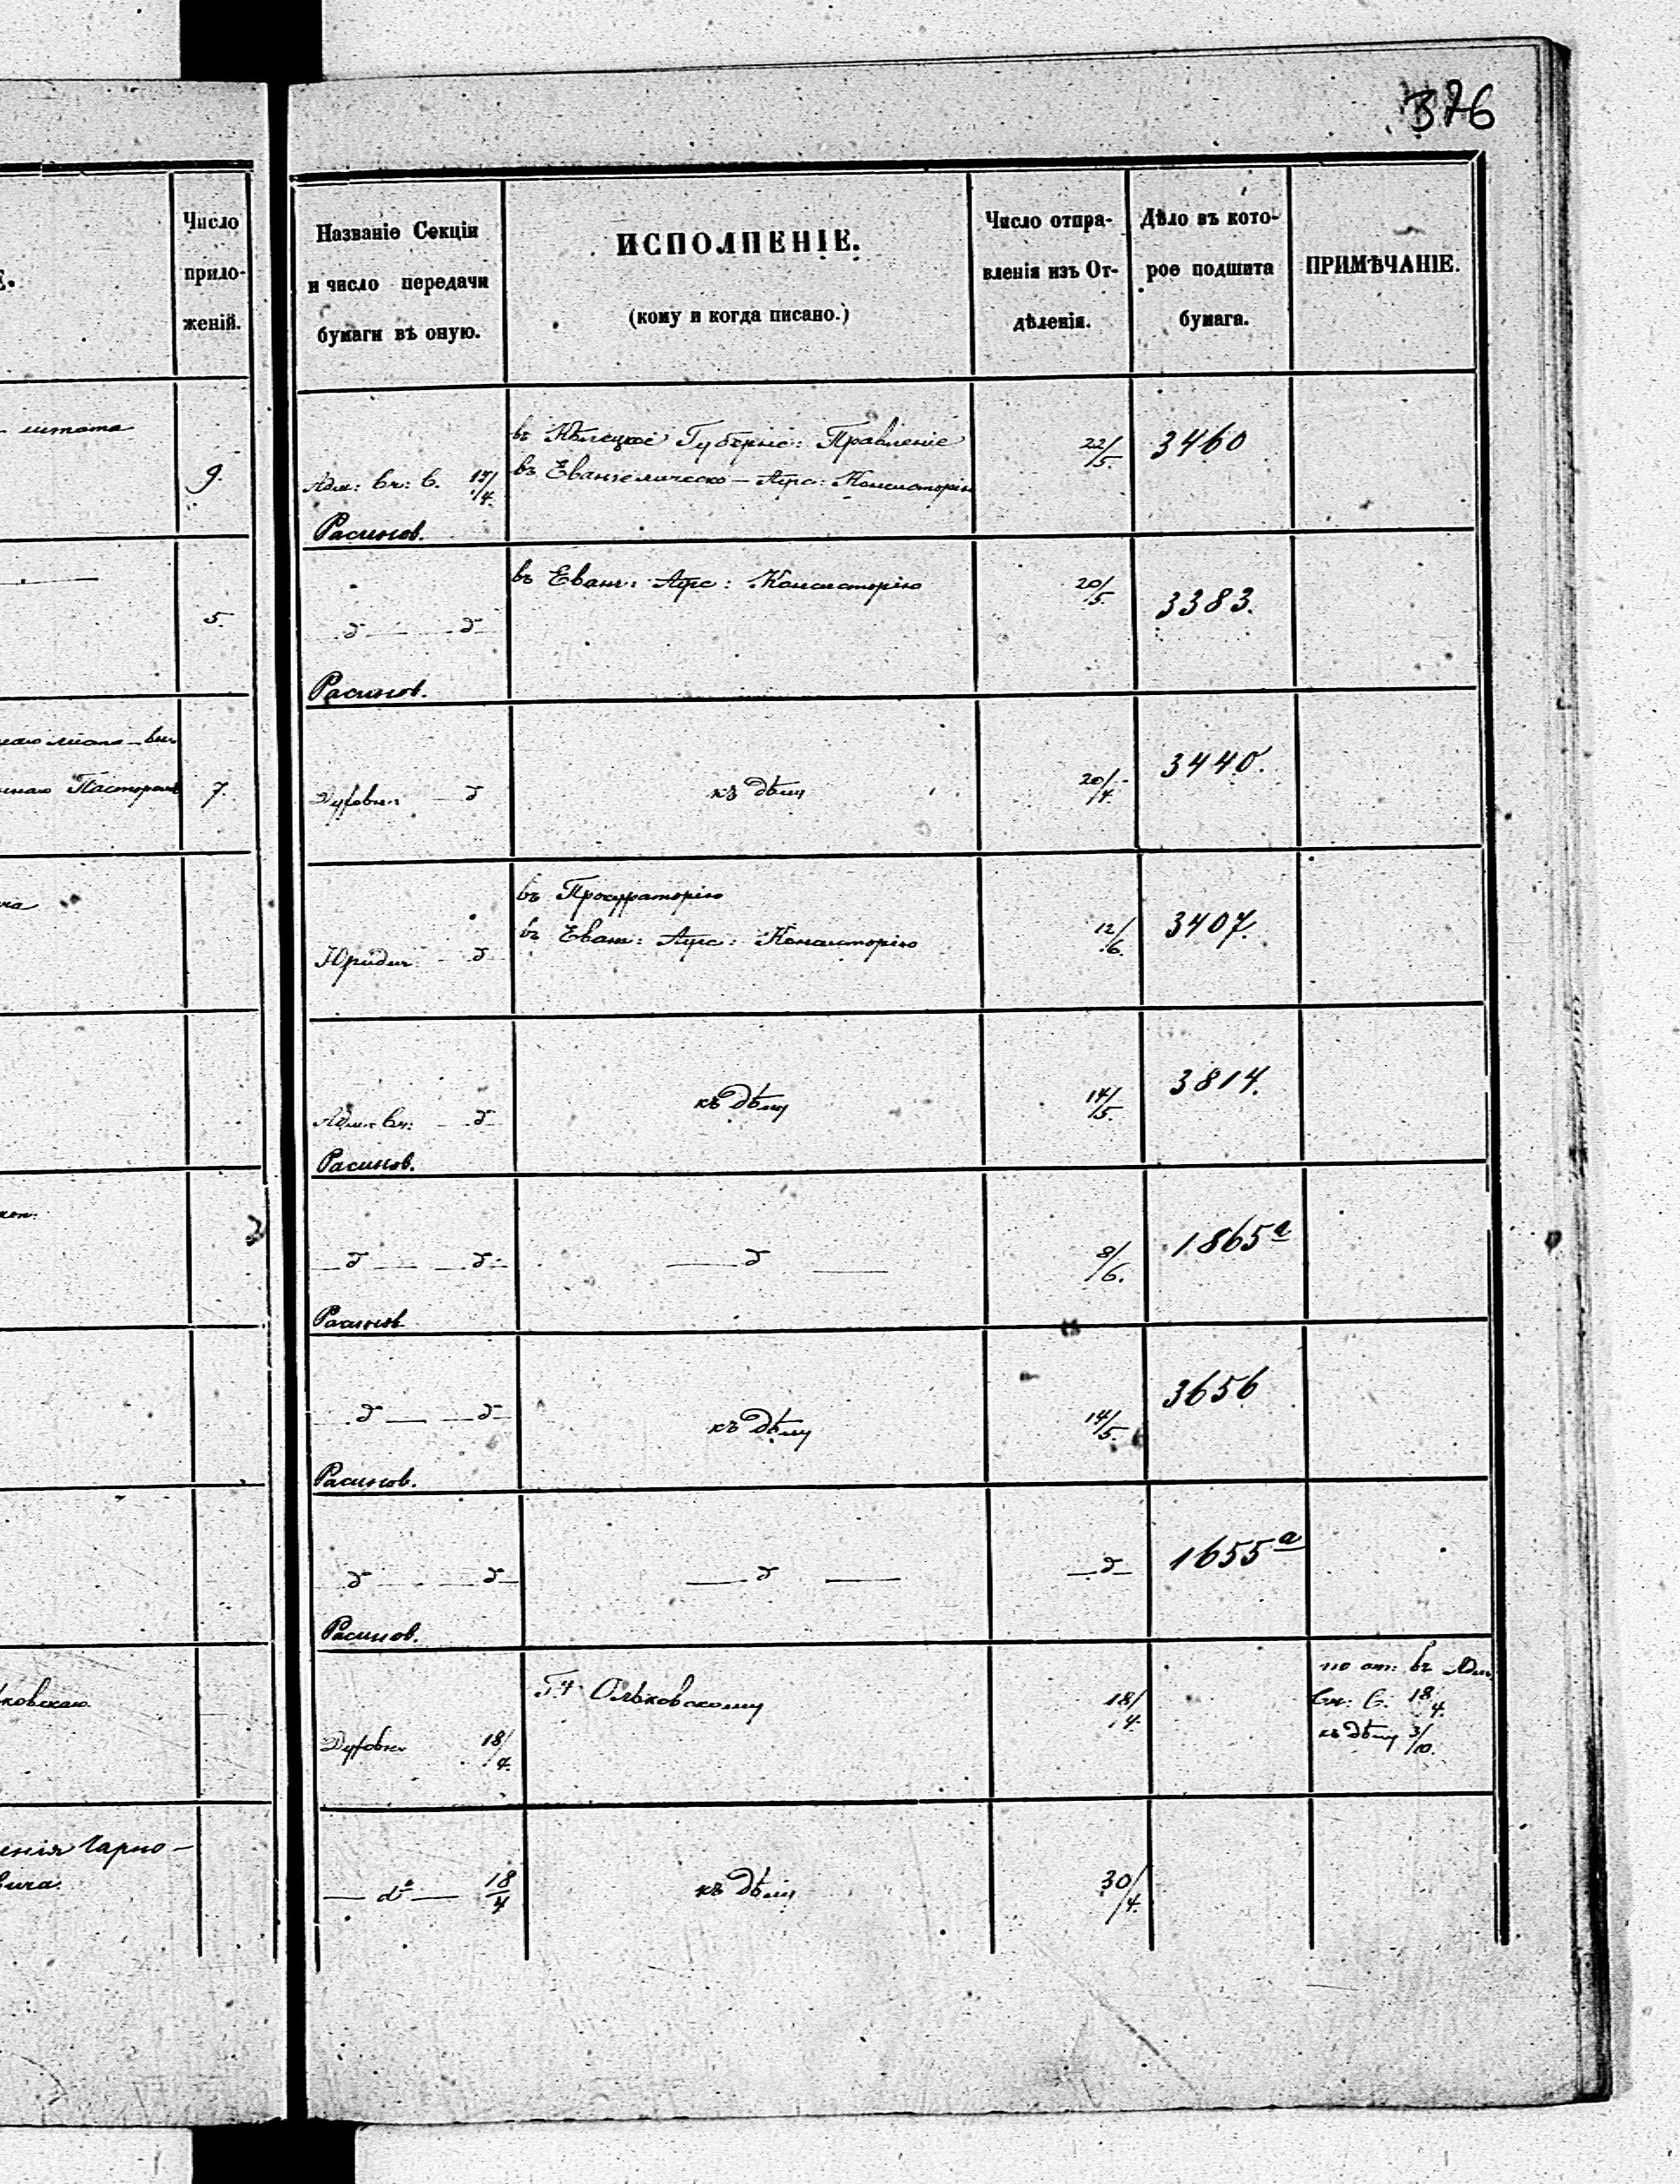 376
Число
прило-
женій.
Названіе Секціи
и число передачи
бумаги въ оную.
ИСПОЛНЕНІЕ.
(кому и когда писано.)
Число отпра-
вленія изъ От-
дѣленія.
Дѣло въ кото-
рое подшита
бумага.
ПРИМѢЧАНІЕ.
штата
9.
Адм: Вч: В. 17/4.
въ Кѣлецкое Губернс: Правленіе
въ Евангелическо-Аугс: Консисторію
22/5.
3460
Расинов.
5.
д д
въ Еванг: Аугс: Консисторію
20/5.
3383.
Расинов.
Пасторомъ
7.
Духовн. д
къ дѣлу
20/4.
3440.
Юридич. д
въ Прокураторію
въ Еванг: Аугс: Консисторію
12/6.
3407.
Адм: Вч: д
къ дѣлу
14/5.
3814.
Расинов.
д д
д
8/6.
1865а
Расинов
д д
къ дѣлу
14/5.
3656
Расинов.
д д
д
д
1655а
Расинов.
ковскаго
Духовн 18/4.
Ольковскому
18/4.
по от: въ Адм
Вч: В. 18/4.
къ дѣлу 3/10.
енія Чарно-
вича.
dº 18/4
къ дѣлу
30/4.